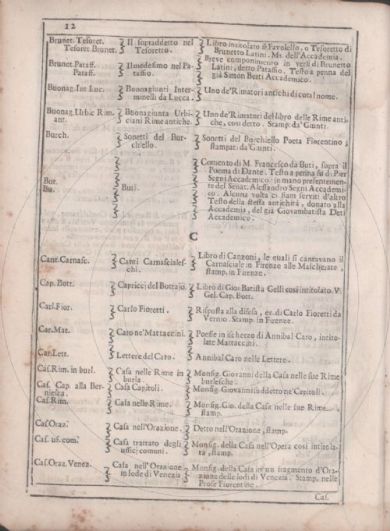 12
Brunet. Tesoret. Il sopraddetto nel Libro intitolato il Favolello, o Tesoretto di
Tesoret. Brunet. Tesoretto. Brunetto Latini. Ms. dell'Accademia.
Brunet. Pataff. Il medesimo nel Pa- Breve componimento in versi di Brunetto
Pataff. taffio. Latini, detto Pataffio. Testo a penna del
già Simon Berti Accademico.
Buonag. Int. Luc. Buonagiunti Inter- Uno de' Rimatori antichi di cotal nome.
minelli da Lucca.
Buonag. Urbic. Rim. Buonagiunta Urbi- Uno de' Rimatori del libro delle Rime anti-
ant. ciani Rime antiche. che, così detto. Stamp. da' Giunti.
Burch. Sonetti del Bur- Sonetti del Burchiello Poeta Fiorentino,
chiello. stampat. da' Giunti.
Comento di M. Francesco da Buti, sopra il
Poema di Dante. Testo a penna fu di Pier
Segni Accademico: in mano presentemen-
But. te del Senat. Alessandro Segni Accademi-
Bu. Buti. co. Alcuna volta ci siam serviti d'altro
Testo della stessa antichità, donato alla
Accademia, del già Giovambatista Deti
Accademico.
C
Cant. Carnasc. Canti Carnasciales- Libro di Canzoni, le quali si cantavano il
chi. Carnasciale in Firenze alle Mascherate,
stamp. in Firenze.
Cap. Bott. Capricci del Bottaio. Libro di Gio: Batista Gelli così intitolato. V.
Gel. Cap. Bott.
Carl. Fior. Carlo Fioretti. Risposta alla difesa, ec. di Carlo Fioretti da
Vernio. Stamp. in Firenze.
Car. Mat. Caro ne' Mattaccini. Poesie in ischerzo di Annibal Caro, intito-
late Mattaccini.
Car. Lett. Lettere del Caro. Annibal Caro nelle Lettere.
Cas. Rim. in burl. Casa nelle Rime in Monsig. Giovanni della Casa nelle sue Rime
burla. burlesche.
Cas. Cap. alla Ber- Casa Capitoli. Monsig. Giovanni suddetto ne' Capitoli.
niesca.
Cas. Rim. Casa nelle Rime. Monsig. Gio. della Casa nelle sue Rime.
stamp.
Cas. Oraz. Casa nell'Orazione. Detto nell'Orazione, stamp.
Cas. us. com. Casa trattato degli Monsig. della Casa nell'Opera così intitola-
uffici comuni. ta, stamp.
Cas. Oraz. Venez. Casa nell'Orazione Monsig. della Casa in un fragmento d'Ora-
in lode di Venezia. zione delle lodi di Venezia. Stamp. nelle
Prose Fiorentine.
Cas.